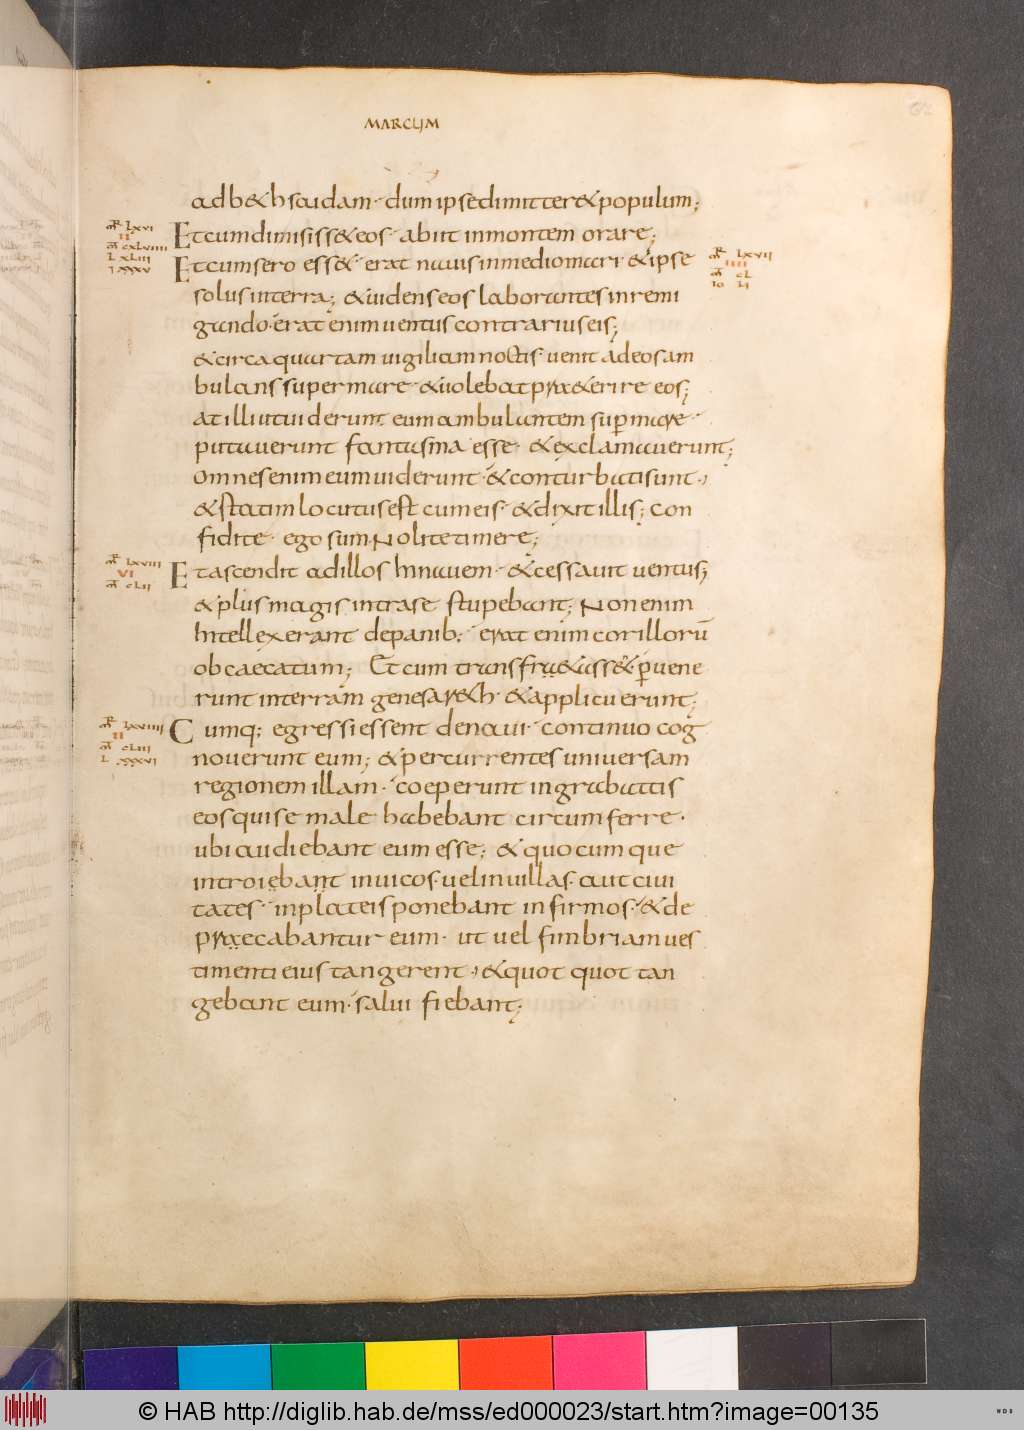 MARCUM
ad b&hsaidam· dum ipse dimitter& populum;
mr lxvi
II
mt cxlviiii
l xliii
i xxxv
Et cum dimisiss& eos· abiit in montem orare;
Et cum sero ess&· erat nauis in medio mari· & ipse
mr lxvii
IIII
mt cl
io li
solus in terra; & uidens eos laborantes in remi
gando· erat enim uentus contrarius eis;
& circa quartam uigiliam noctis· uenit ad eos am
bulans super mare· & uolebat pr&erire eos;
at illi ut uiderunt eum ambulantem sup mare·
putauerunt fantasma esse· & exclamauerunt;
omnes enim eum uiderunt· & conturbati sunt·
& statim locutus est cum eis· & dixit illis; Con
fidite· ego sum· Nolite timere;
mr lxviii
VI
mt clii
Et ascendit ad illos In nauem· & cessauit uentus;
& plus magis intra se stupebant; Non enim
Intellexerant de panib:· erat enim cor illorū
obcaecatum; Et cum transfr&ass&· p uene
runt in terram genesar&h· & applicuerunt;
mr lxviiii
II
mt cliii
l xxxvi
Cumq: egressi essent de naui· continuo cog
nouerunt eum; & percurrentes uniuersam
regionem illam· coeperunt in grabattis
eos qui se male habebant circumferre·
ubi audiebant eum esse; & quocumque
introiebant in uicos· uel in uillas· aut ciui
tates· in plateis ponebant infirmos· & de
praecabantur eum· ut uel fimbriam ues
timenti eius tangerent· & quot quot tan
gebant eum· salui fiebant;
© HAB http://diglib.hab.de/mss/ed000023/start.htm?image=00135